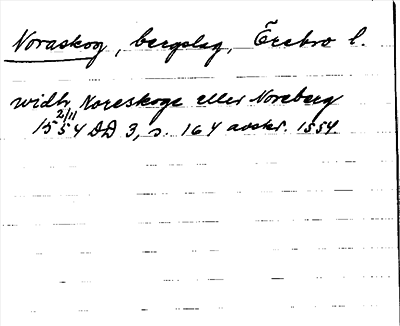 Noraskog, bergslag, Örebro l.
widh Noreskoge eller Noreberg
2/11
1554 DD 3, s. 164 avskr. 1554